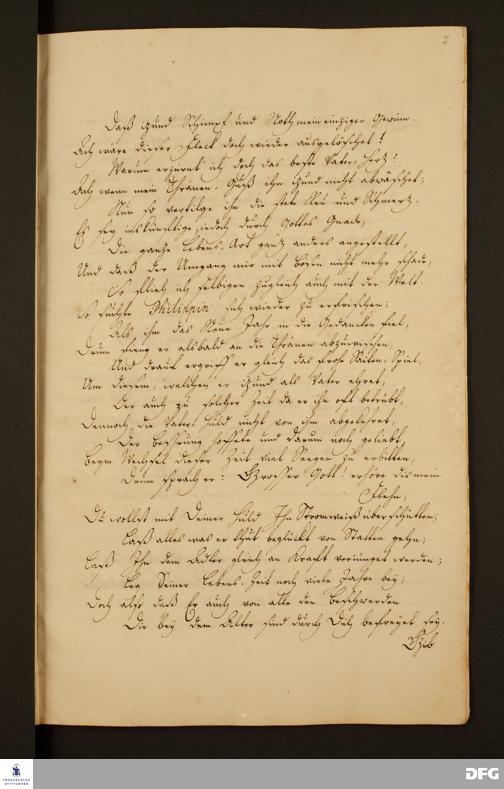 7
Daß itzund Schimpf und Noth mein einziger Gewinn.
Ach wäre dieser Fleck doch wieder ausgelöschet!
Warum erzürnt' ich doch das beste Vater-Hertz?
Ach wenn mein Thränen-Guß ihn itzund nicht abwäschet;
Nun so vertilge ihn die stete Reu und Schmertz.
Es sey ins künfftige jedoch durch Gottes Gnade,
Die gantze Lebens-Art gantz anders angestellt,
Und daß der Umgang mir mit Bösen nicht mehr schade;
So flieh ich selbigen zugleich auch mit der Welt.
So suchte Philippin sich wieder zu erfrischen;
Als ihm das Neue Jahr in die Gedancken fiel,
Drum fieng er alsbald an die Thränen abzuwischen,
Und drauf ergriff er gleich das frohe Saiten-Spiel,
Um diesem, welchen er itzund als Vater ehret,
Der auch zu solcher Zeit da er ihn oft betrübt,
Dennoch die Vaters Huld nicht von ihm abgekehret,
Der Besserung hoffete und darum noch geliebt,
Beym Wechsel dieser Zeit viel Seegen zu erbitten,
Drum sprach er: Grosser Gott! erhöre dis mein
Flehn,
Du wollst mit Deiner Huld Ihn Stromweiß überschütten,
Laß alles was er thut beglückt von Statten gehn;
Laß Ihn dem Adler gleich an Krafft verjünget werden;
Leg Seiner Lebens-Zeit noch viele Jahre bey;
Doch also daß Er auch von alle den Beschwerden
Die bey dem Alter sind durch Dich befreyet sey.
Gieb
FRANCKESCHE STIFTUNGEN
DFG